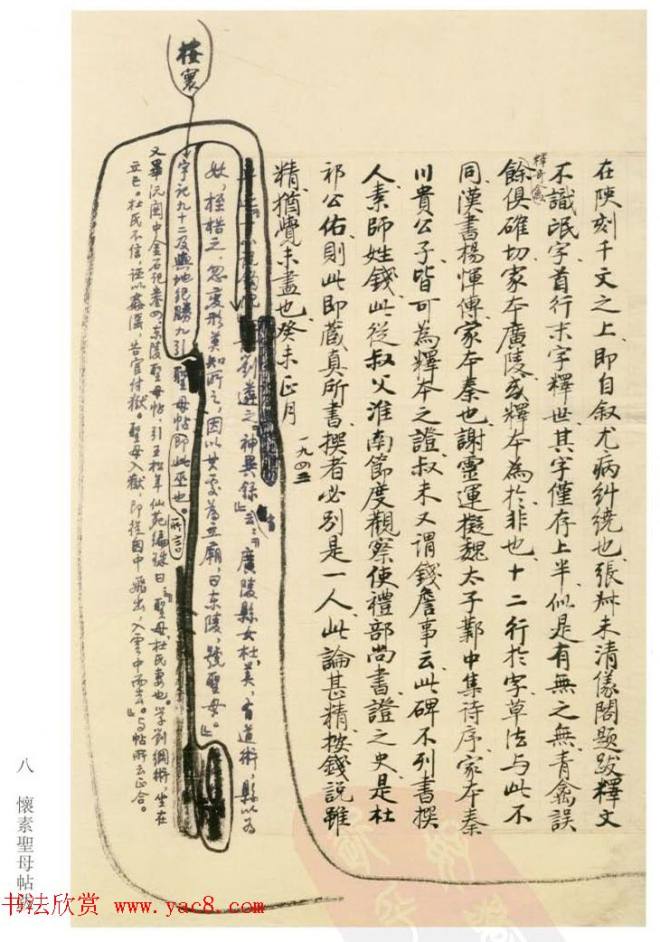 在陝刻千文之上即自叙尤病糾繞也張叔未清儀閣題跋釋文
不識泯字首行末字釋世其字僅存上半似是有無之無青禽誤
釋奇禽
餘俱確切家本廣陵或釋本為於非也十二行於字草法與此不
同漢書楊惲傳家本秦也謝靈運擬魏太子鄴中集待序家本秦
川貴公子皆可為釋本之證叔未又謂錢詹事云此碑不列書撰
人素師姓錢此從叔父淮南節度觀察使禮部尚書證之史是杜
祁公佑則此即藏真所書撰者必別是一人此論甚精按錢說雖
精猶覺未盡也癸未正月
一九四三
劉遴之『神異録』云：廣陵縣女杜美，有道術，縣以為
妖，桎梏之，忽變形莫知所之，因以其處為立廟，曰东陵，號聖母。』
按寰
宇記九十二及輿地紀勝九引
聖母帖即此巫也。
所言
又畢沅関中金石記卷四东陵聖母帖，引王松年仙苑編珠曰：『聖母，杜氏妻也。学劉綱術，坐在
立亡。杜氏不信，誣以姦淫，告官付獄。聖母入獄，即從囱中飛出，入雲中而去。』与帖所云正合。
八 懷素聖母帖跋
书法欣赏 www.yac8.com